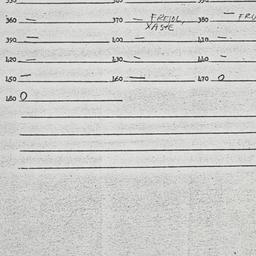 360 — 370 — FREJOL, 380 — FRU
XASTE
390 — 400 — 410 —
420 — 430 — 440 —
450 — 460 — 470 0
480 0